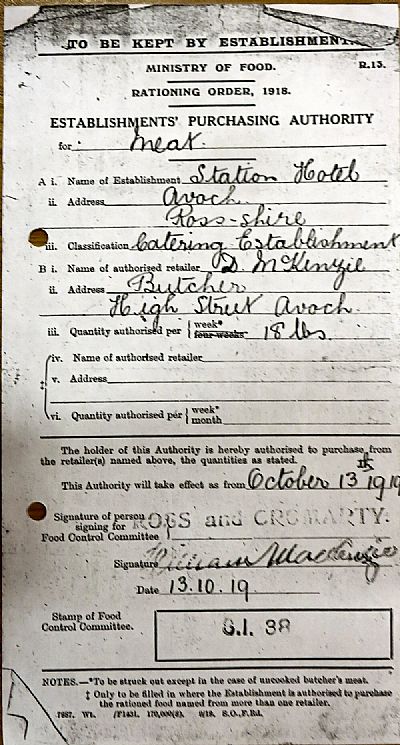 TO BE KEPT BY ESTABLISHMENT.
MINISTRY OF FOOD. R.13.
RATIONING ORDER, 1918.
ESTABLISHMENTS' PURCHASING AUTHORITY
for Meat.
A i. Name of Establishment Station Hotel
ii. Address Avoch
Ross-shire
iii. Classification Catering Establishment
B i. Name of authorised retailer D. McKenzie
ii. Address Butcher
High Street Avoch
iii. Quantity authorised per { week*
four weeks 18 lbs.
iv. Name of authorised retailer
‡ v. Address
vi. Quantity authorised per { week*
month
The holder of this Authority is hereby authorised to purchase from
the retailer(s) named above, the quantities as stated.
This Authority will take effect as from October 13th 1919
Signature of person
signing for
Food Control Committee
ROSS and CROMARTY.
Signature William MacKenzie
Date 13.10.19
Stamp of Food
Control Committee.
S.I. 38
NOTES.—*To be struck out except in the case of uncooked butcher's meat.
‡ Only to be filled in where the Establishment is authorised to purchase
the rationed food from more than one retailer.
7887. Wt. /F1451. 170,000(8). 9/18. S.O.,F.Rd.